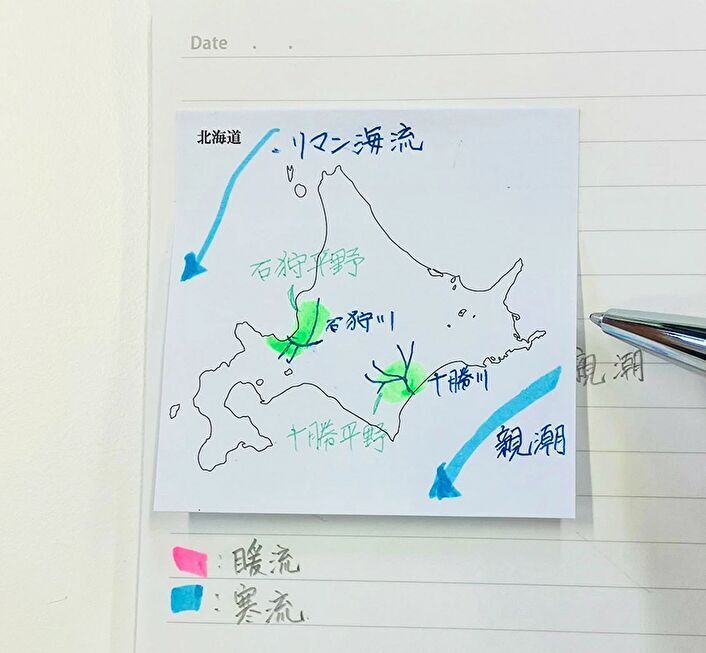 Date . .
北海道
リマン海流
石狩平野
石狩川
十勝川
十勝平野
親潮
親潮
:暖流
:寒流